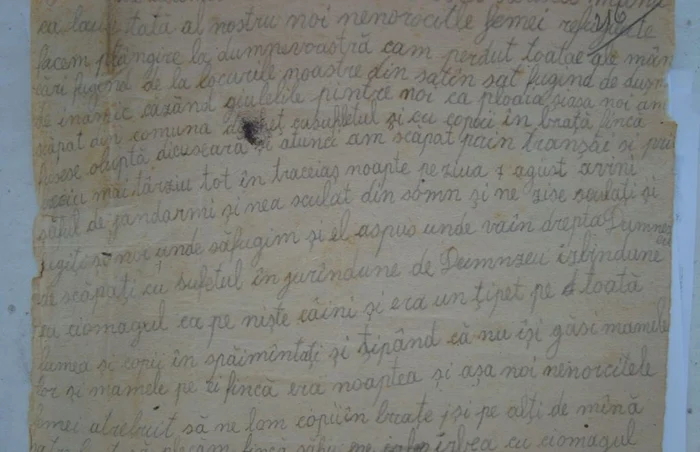 ca la un tată al nostru noi nenorocitle femei refugiate
216
facem plângire la dumnevoastră cam perdut toatae ale mân
cări fugend de la locurile noastre din satîn sat fugind de dușm
de inamic cazând giulelile pintre noi ca ploaia și așa noi am
scăpat din comuna cusufletul și cu copoci în brață fincă
fusese ocuptă dicuscară și atunci am scăpat prin tranșăi și
mai târziu tot în traceiaș noapte pe ziua 7 agust a vini
de jandarmi și nea sculat din sомn și ne zise sculați și
fugiți și noi unde săfugim și el aspus unde vaîn drepta Dumnez
scăpați cu sufletul în jurindune de Dumnzeu izbindune
cu ciomagul ca pe niște câini și era un țipet pe toată
lumea și copii în spăimîntați și țipând că nu își găsi mamele
lor și mamele pe ei fincă era noaptea și așa noi nenorcitele
femei atrebuit să ne lom copiin brațe și pe alți de mînă
plecăm fincă ne izbea cu ciomagul